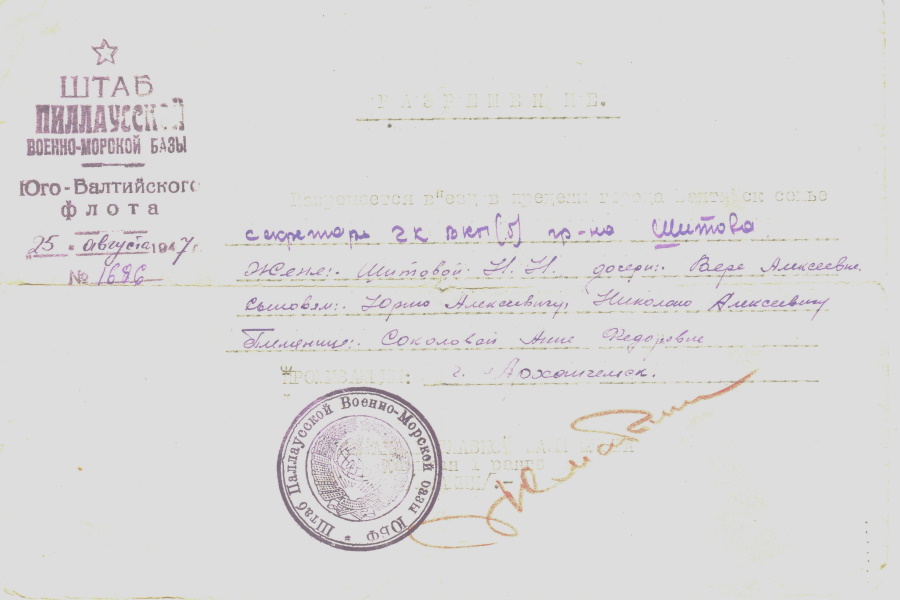 ШТАБ
ПИЛЛАУССКОЙ
ВОЕННО-МОРСКОЙ БАЗЫ
Юго-Балтийского
флота
"25" августа 1947 г.
№ 1686
РАЗРЕШЕНИЕ.
Разрешается в"езд в пределы города семье
секретаря ГК ВКП(б) гр-на Шитова
Жене:. Шитовой Н. Н. дочери:. Вере Алексеевне.
сыновьям:. Юрию Алексеевичу, Николаю Алексеевичу
Племянице:. Соколовой Анне Федоровне
г.
1 ранга
Штаб Паллаусской Военно-Морской базы ЮБФ